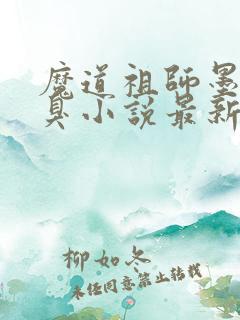 魔道祖師墨
臭小說最新
柳如冬
未经同意禁止转载